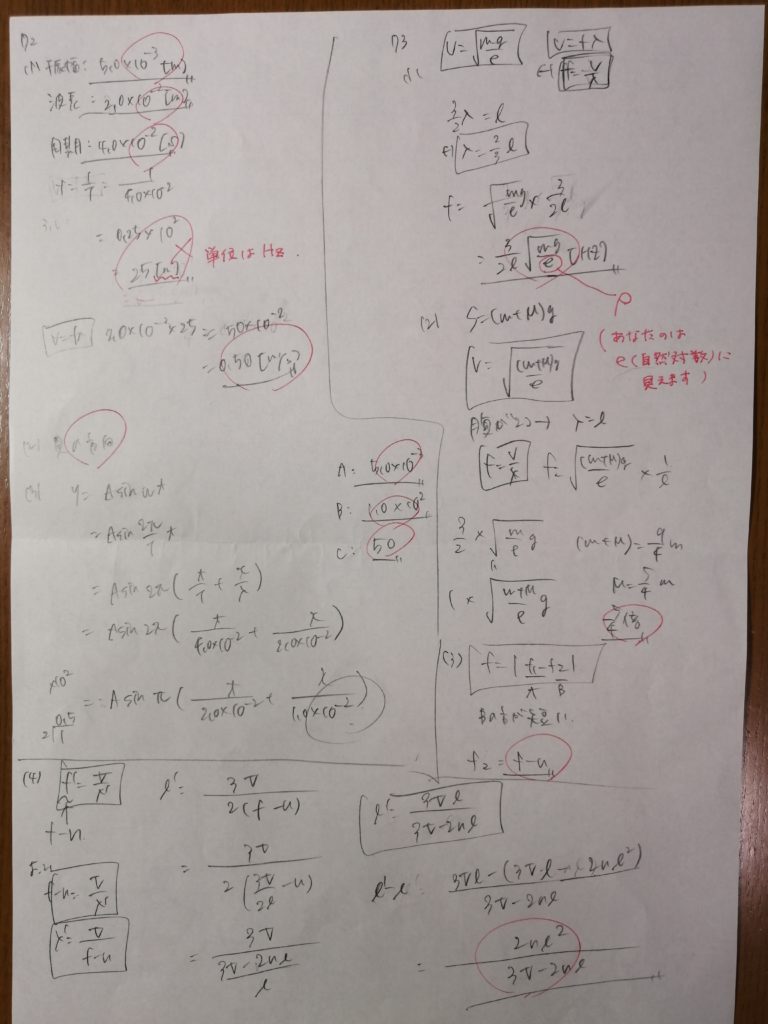 72
(1) 振幅: 5.0×10⁻³ [m]
波長: 2.0×10⁻² [m]
周期: 4.0×10⁻² [s]
f = 1/T = 1/4.0×10⁻²
= 0.25×10²
= 25 [m]
単位は Hz.
v=fλ 2.0×10⁻²×25 = 50×10⁻²
= 0.50 [m/s]
(2)
(3) y = A sin ωt
= A sin 2π/T t
= A sin 2π ( t/T + x/λ )
= A sin 2π ( t/4.0×10⁻² + x/2.0×10⁻² )
= A sin π ( t/2.0×10⁻² + x/1.0×10⁻² )
A: 5.0×10⁻³
B: 1.0×10²
C: 50
73
(1) V = √(mg/e) v = fλ
⇔ f = v/λ
3/2 λ = l
⇔ λ = 2/3 l
f = √(mg/e) × 3/2l
= 3/2l √(mg/e) [Hz]
ρ
(2) S = (m+M)g
(あなたのは
e(自然対数)に
見えます)
V = √((m+M)g/e)
腹が2コ→ λ = l
f = v/λ f = √((m+M)g/e) × 1/l
3/2 × √(m/e g) (m+M) = 9/4 m
1 × √(m+M/e g) M = 5/4 m
5/4 倍
(3) f = |f₁-f₂|
A B
f₂ = f-n
(4) f' = v/λ'
f-n
f-n = v/λ'
λ' = v/f-n
l' = 3v/2(f-n)
= 3v/2(3v/2l -n)
= 3v/(3v-2nl/l)
l' = 3vl/3v-2nl
l'-l = 3vl-(3vl-2nl²)/3v-2nl
= 2nl²/3v-2nl